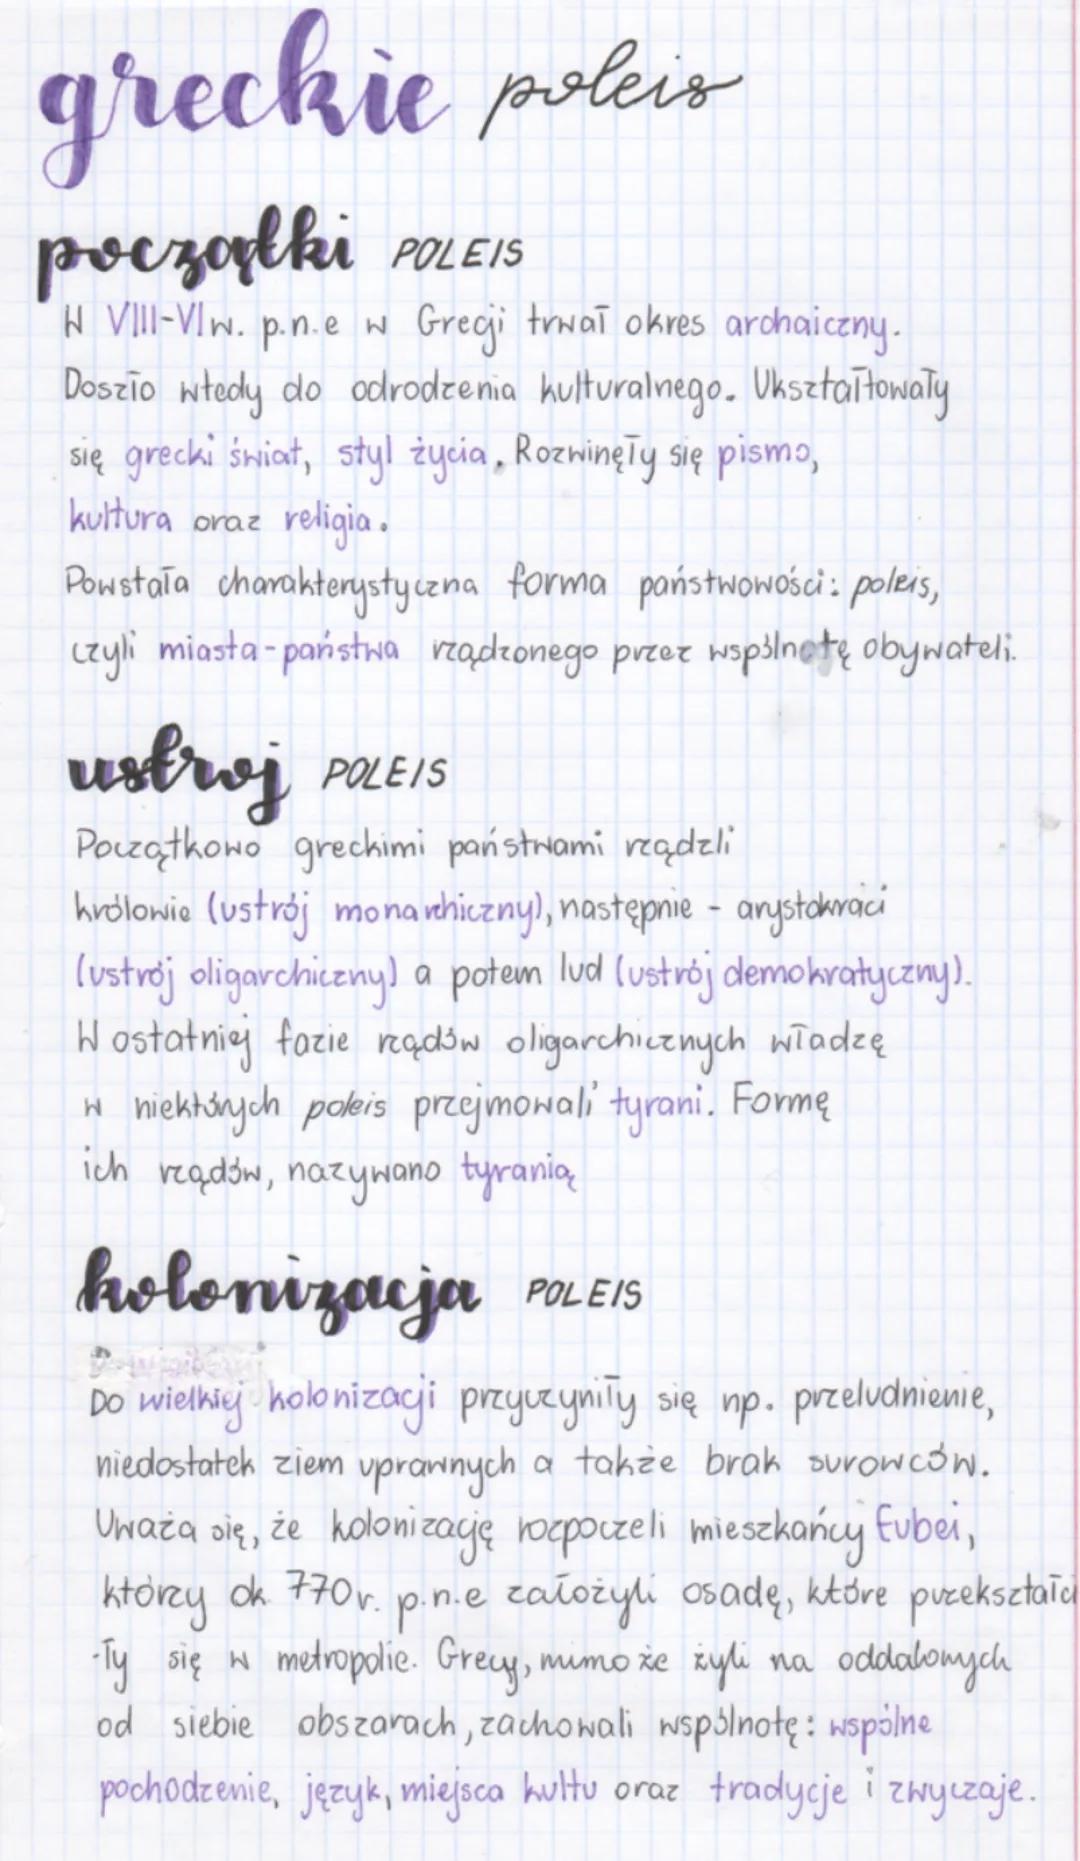 greckie poleis
początki POLEIS
W VIII-VI w. p.n.e w Grecji trwał okres archaiczny.
Doszło wtedy do odrodzenia kulturalnego. Ukształtowały
się grecki świat, styl życia. Rozwinęły się pismo,
kultura oraz religia.
Powstała charakterystyczna forma państwowości: poleis,
czyli miasta-państwa rządzonego przez wspólnotę obywateli.
ustrój POLEIS
Początkowo greckimi państwami rządzli
królowie (ustrój monarchiczny), następnie - arystokraci
(ustrój oligarchiczny) a potem lud (ustrój demokratyczny).
W ostatniej fazie rządów oligarchicznych władzę
w niektórych poleis przejmowali tyrani. Formę
ich rządów, nazywano tyranią
kolonizacja POLEIS
Do wielkiej kolonizacji przyczyniły się np. przeludnienie,
niedostatek ziem uprawnych a także brak surowców.
Uważa się, że kolonizację rozpoczeli mieszkańcy Eubei,
którzy ok. 770 r. p.n.e założyli osadę, które przekształci
-ły się w metropolie. Grecy, mimo że żyli na oddalonych
od siebie obszarach, zachowali wspólnotę: wspólne
pochodzenie, język, miejsca kultu oraz tradycje i zwyczaje.